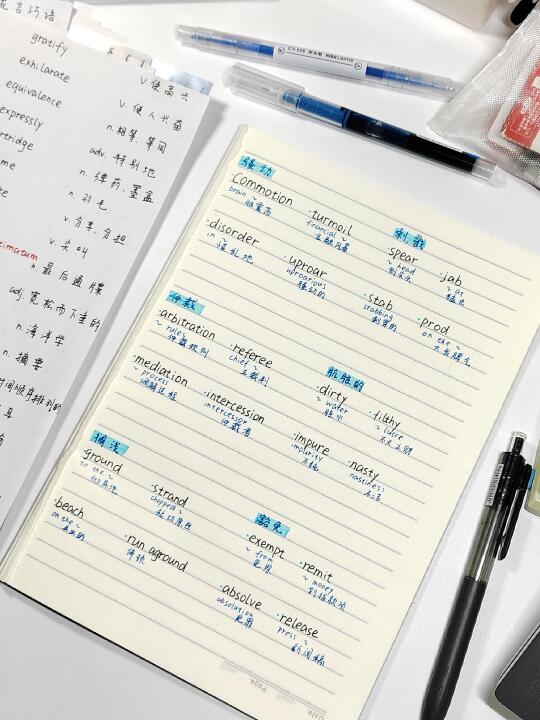 gratify
exhilarate
equivalence
expressly
v. 使高兴
v. 使人兴奋
n. 相等、等同
adv. 特别地
n. 弹药、墨盒
n. 羽毛
v. 分享、分担
v. 尖叫
n. 最后通牒
adj. 宽松而下垂的
n. 海洋学
n. 摘要
时间顺序排列的
HIGHLIGHTER
骚动
commotion
brain ~
脑震荡
·turmoil
financial ~
金融风暴
·disorder
~ 慌乱地
·uproar
uproarious
骚动的
刺戳
spear
~ head
·jab
~ at
·stab
stabbing
刺穿的
·prod
on the ~
仲裁
·arbitration
~ rules
仲裁规则
·referee
chief ~
主裁判
·mediation
~ process
调解过程
·intercession
intercessor
仲裁者
肮脏的
·dirty
~ water
脏水
·filthy
~ lucre
不义之财
·impure
impurity
不纯
·nasty
nastiness
搁浅
·ground
to the ~
·strand
chopped ~
·beach
on the ~
失业的
·run aground
停顿
豁免
·exempt
~ from
免除
·remit
~ money
·absolve
absolution
·release
press ~
新闻稿
Page.